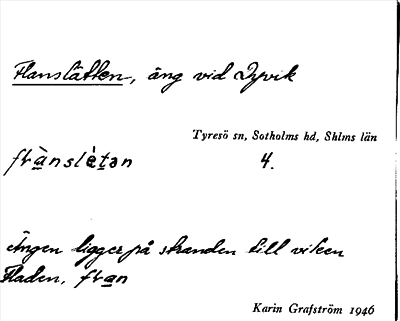 Flanslätten, äng vid Dyvik
Tyresö sn, Sotholms hd, Shlms län
4.
Ängen ligger på stranden till viken
Fladen.
Karin Grafström 1946